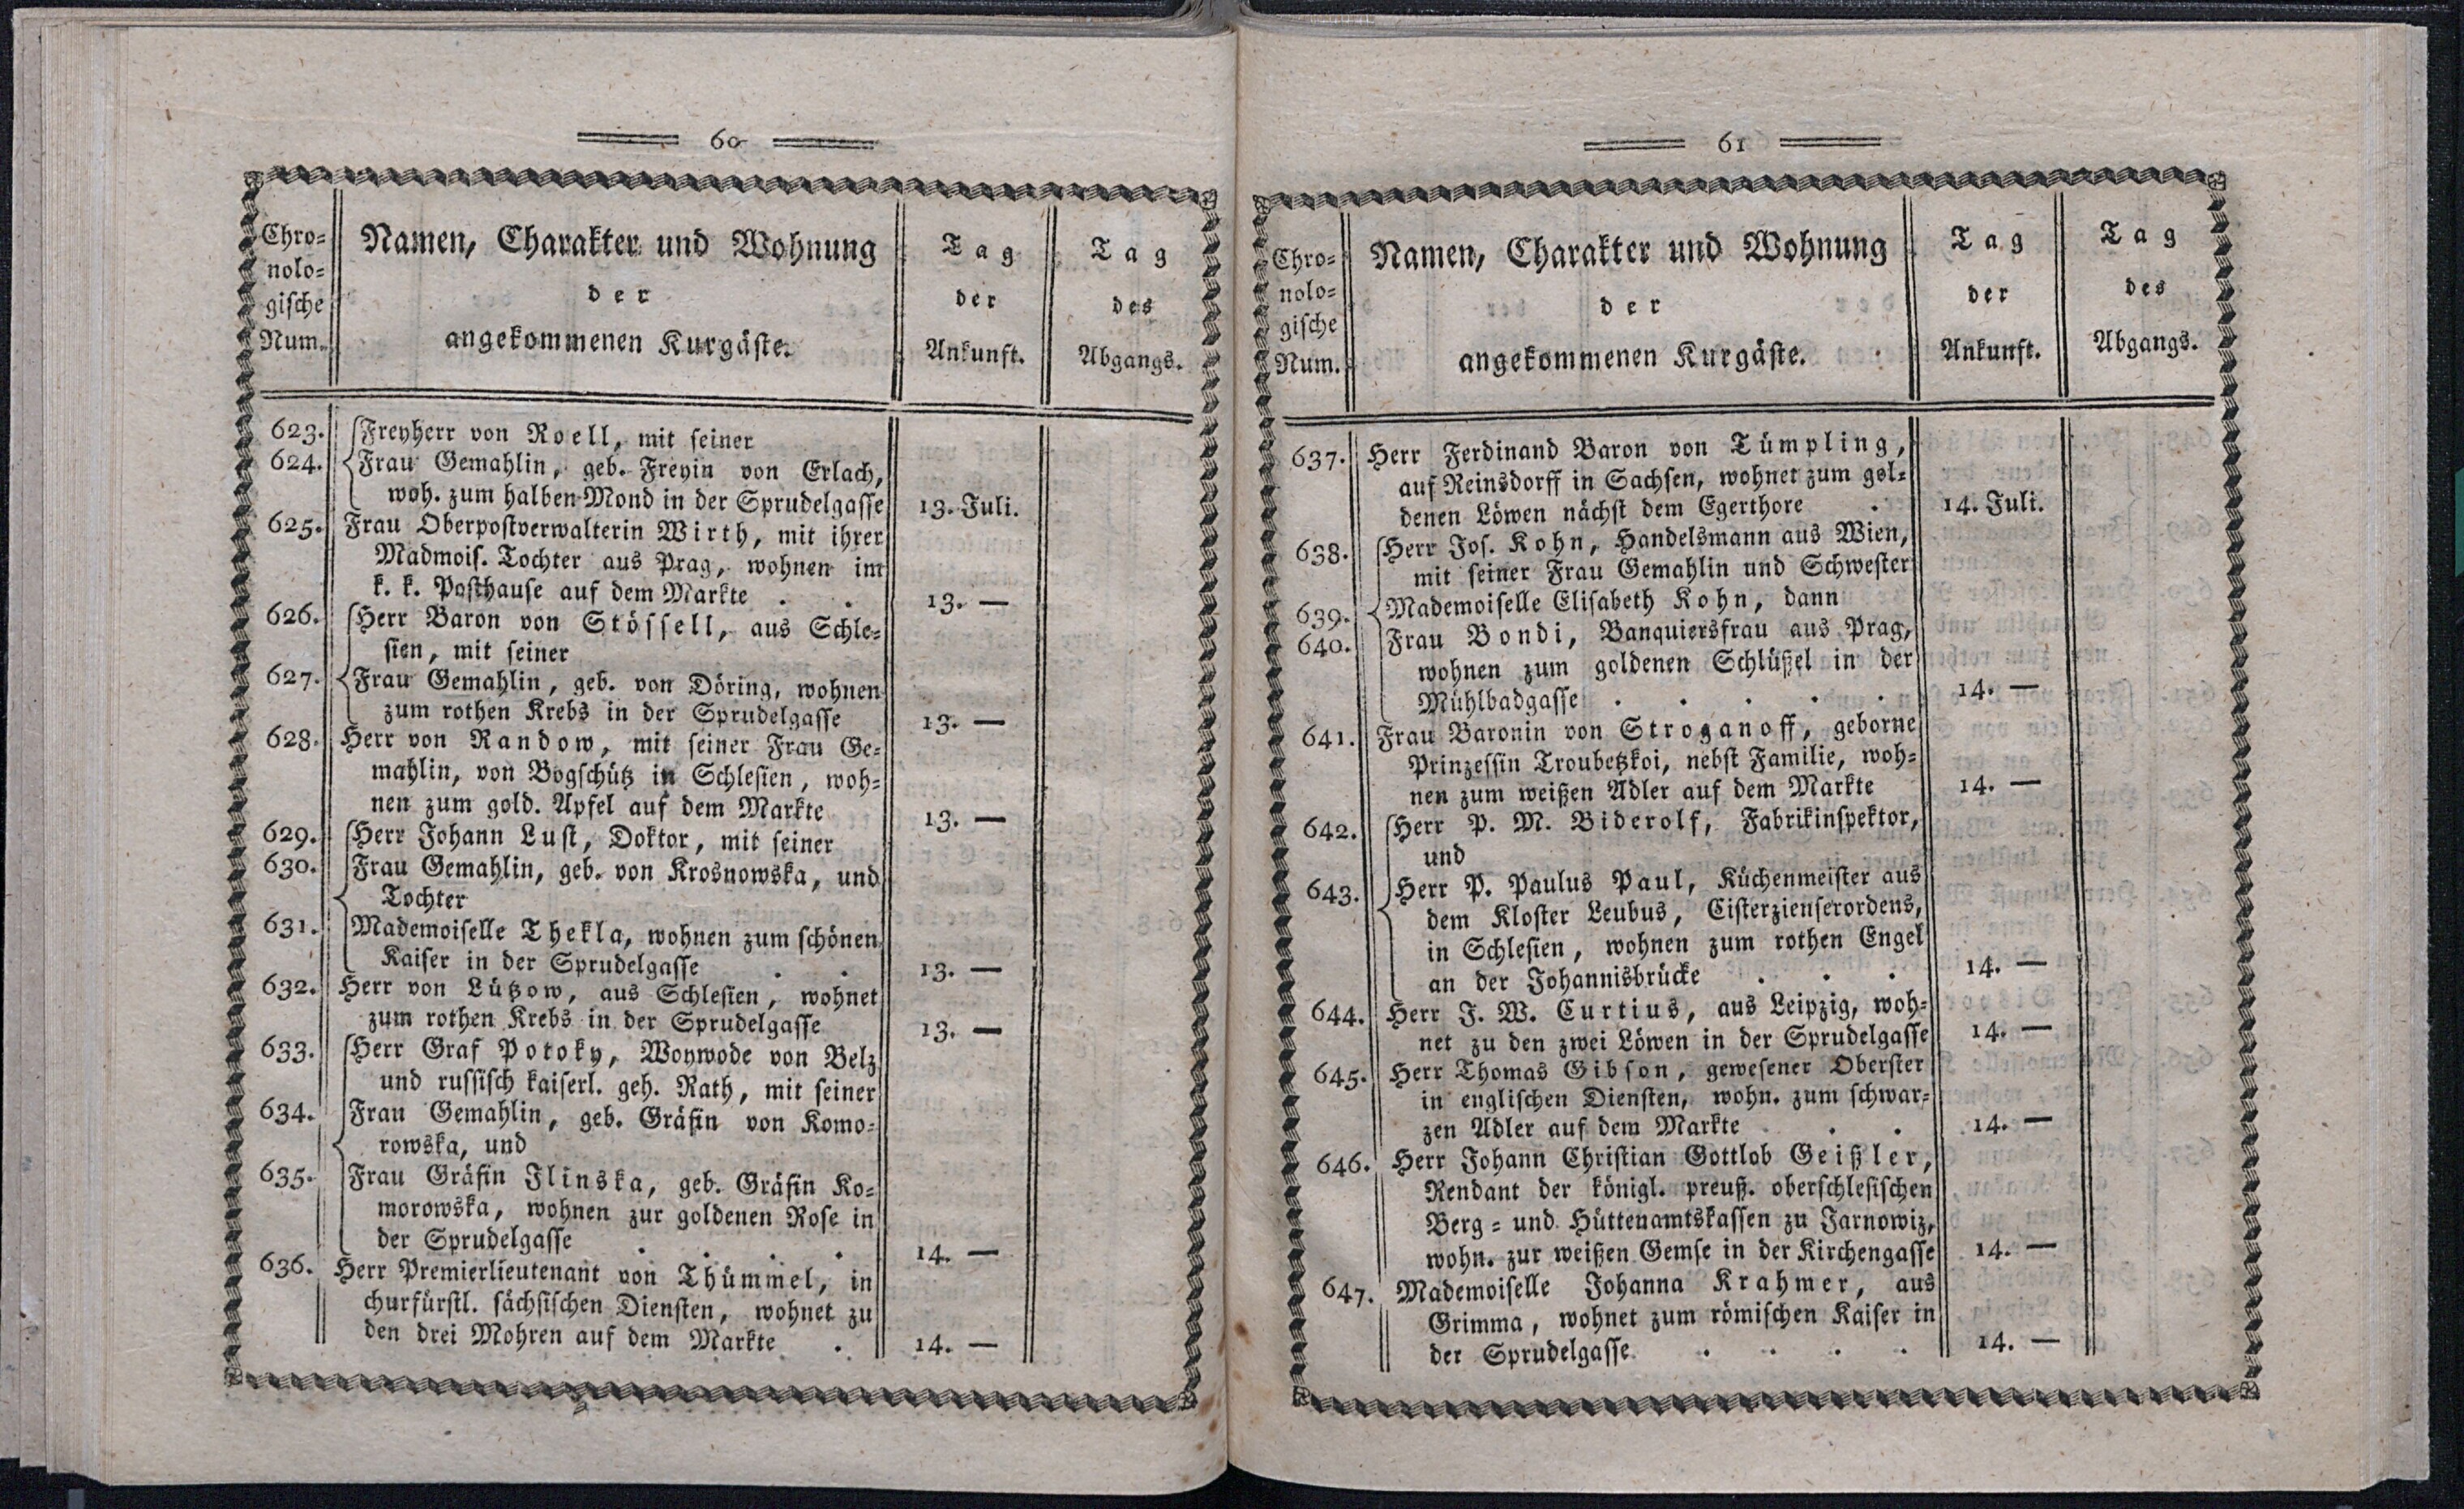 60
Chro-
nolo-
gische
Num.
Namen, Charakter und Wohnung
der
angekommenen Kurgäste.
Tag
der
Ankunft.
Tag
des
Abgangs.
623. Freyherr von Roell, mit seiner
624. Frau Gemahlin, geb. Freyin von Erlach,
woh. zum halben Mond in der Sprudelgasse 13. Juli.
625. Frau Oberpostverwalterin Wirth, mit ihrer
Madmois. Tochter aus Prag, wohnen im
k. k. Posthause auf dem Markte . . 13. —
626. Herr Baron von Stössell, aus Schle-
sien, mit seiner
627. Frau Gemahlin, geb. von Döring, wohnen
zum rothen Krebs in der Sprudelgasse 13. —
628. Herr von Randow, mit seiner Frau Ge-
mahlin, von Bogschütz in Schlesien, woh-
nen zum gold. Apfel auf dem Markte 13. —
629. Herr Johann Lust, Doktor, mit seiner
630. Frau Gemahlin, geb. von Krosnowska, und
Tochter
631. Mademoiselle Thekla, wohnen zum schönen
Kaiser in der Sprudelgasse . . 13. —
632. Herr von Lützow, aus Schlesien, wohnet
zum rothen Krebs in der Sprudelgasse 13. —
633. Herr Graf Potoky, Woywode von Belz
und russisch kaiserl. geh. Rath, mit seiner
634. Frau Gemahlin, geb. Gräfin von Komo-
rowska, und
635. Frau Gräfin Ilinska, geb. Gräfin Ko-
morowska, wohnen zur goldenen Rose in
der Sprudelgasse . . . . 14. —
636. Herr Premierlieutenant von Thümmel, in
churfürstl. sächsischen Diensten, wohnet zu
den drei Mohren auf dem Markte . 14. —
61
Chro-
nolo-
gische
Num.
Namen, Charakter und Wohnung
der
angekommenen Kurgäste.
Tag
der
Ankunft.
Tag
des
Abgangs.
637. Herr Ferdinand Baron von Tümpling,
auf Reinsdorff in Sachsen, wohnet zum gol-
denen Löwen nächst dem Egerthore . 14. Juli.
638. Herr Jos. Kohn, Handelsmann aus Wien,
mit seiner Frau Gemahlin und Schwester
639. Mademoiselle Elisabeth Kohn, dann
640. Frau Bondi, Banquiersfrau aus Prag,
wohnen zum goldenen Schlüßel in der
Mühlbadgasse . . . . . 14. —
641. Frau Baronin von Stroganoff, geborne
Prinzessin Troubetzkoi, nebst Familie, woh-
nen zum weißen Adler auf dem Markte 14. —
642. Herr P. M. Biderolf, Fabrikinspektor,
und
643. Herr P. Paulus Paul, Küchenmeister aus
dem Kloster Leubus, Cisterzienserordens,
in Schlesien, wohnen zum rothen Engel
an der Johannisbrücke . . . 14. —
644. Herr J. W. Curtius, aus Leipzig, woh-
net zu den zwei Löwen in der Sprudelgasse 14. —
645. Herr Thomas Gibson, gewesener Oberster
in englischen Diensten, wohn. zum schwar-
zen Adler auf dem Markte . . 14. —
646. Herr Johann Christian Gottlob Geißler,
Rendant der königl. preuß. oberschlesischen
Berg- und Hüttenamtskassen zu Jarnowiz,
wohn. zur weißen Gemse in der Kirchengasse 14. —
647. Mademoiselle Johanna Krahmer, aus
Grimma, wohnet zum römischen Kaiser in
der Sprudelgasse . . . . 14. —